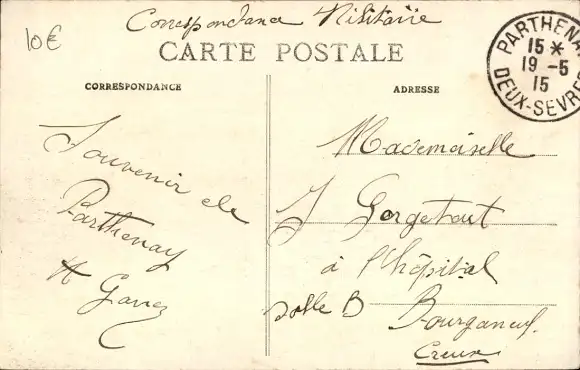 10€
Correspondance Militaire
CARTE POSTALE
PARTHENAY
15 *
19 -5
15
DEUX-SEVRES
CORRESPONDANCE
ADRESSE
Souvenir de
Parthenay
Mademoiselle
J Gorgetout
à l'hôpital
salle B Bourganeuf
Creuse